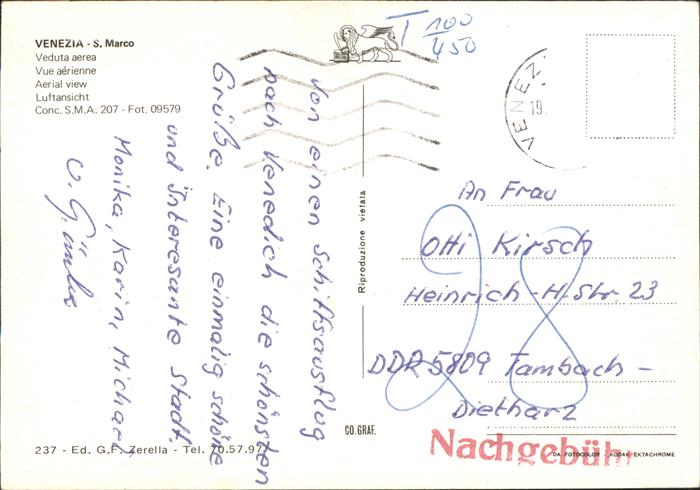 VENEZIA - S. Marco
Veduta aerea
Vue aérienne
Aerial view
Luftansicht
Conc. S.M.A. 207 - Fot. 09579
T 100/450
VENEZ
19.
Von einen Schiffsausflug
nach Venedich die schönsten
Grüße. Eine einmalig schöne
und interesante Stadt
Monika, Karin, Michael
u. Günter
Riproduzione vietata
An Frau
Otti Kirsch
Heinrich-H. Str. 23
DDR 5809 Tambach-
Dietharz
28
CO. GRAF.
Nachgebühr
DA FOTOCOLOR KODAK EKTACHROME
237 - Ed. G.F. Zerella - Tel. 70.57.97